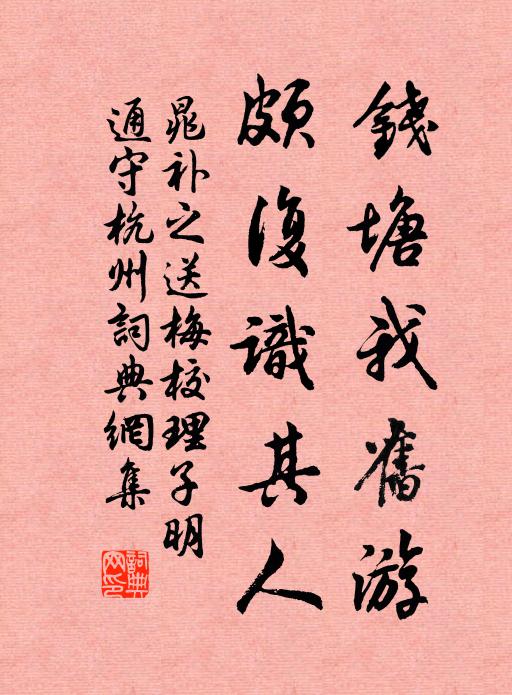 錢塘我舊游
頗復識其人
晁补之送梅校理子明
通守杭州詞典網集
詞典网印